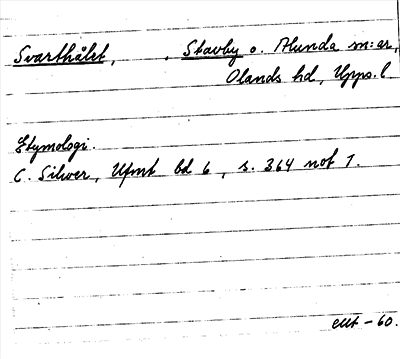 Svarthålet, . Stavby o. Alunda m:ar,
Olands hd, Upps. l
Etymologi.
C. Silwer, Ufmt bd 6, s. 364 not 1.
-60.